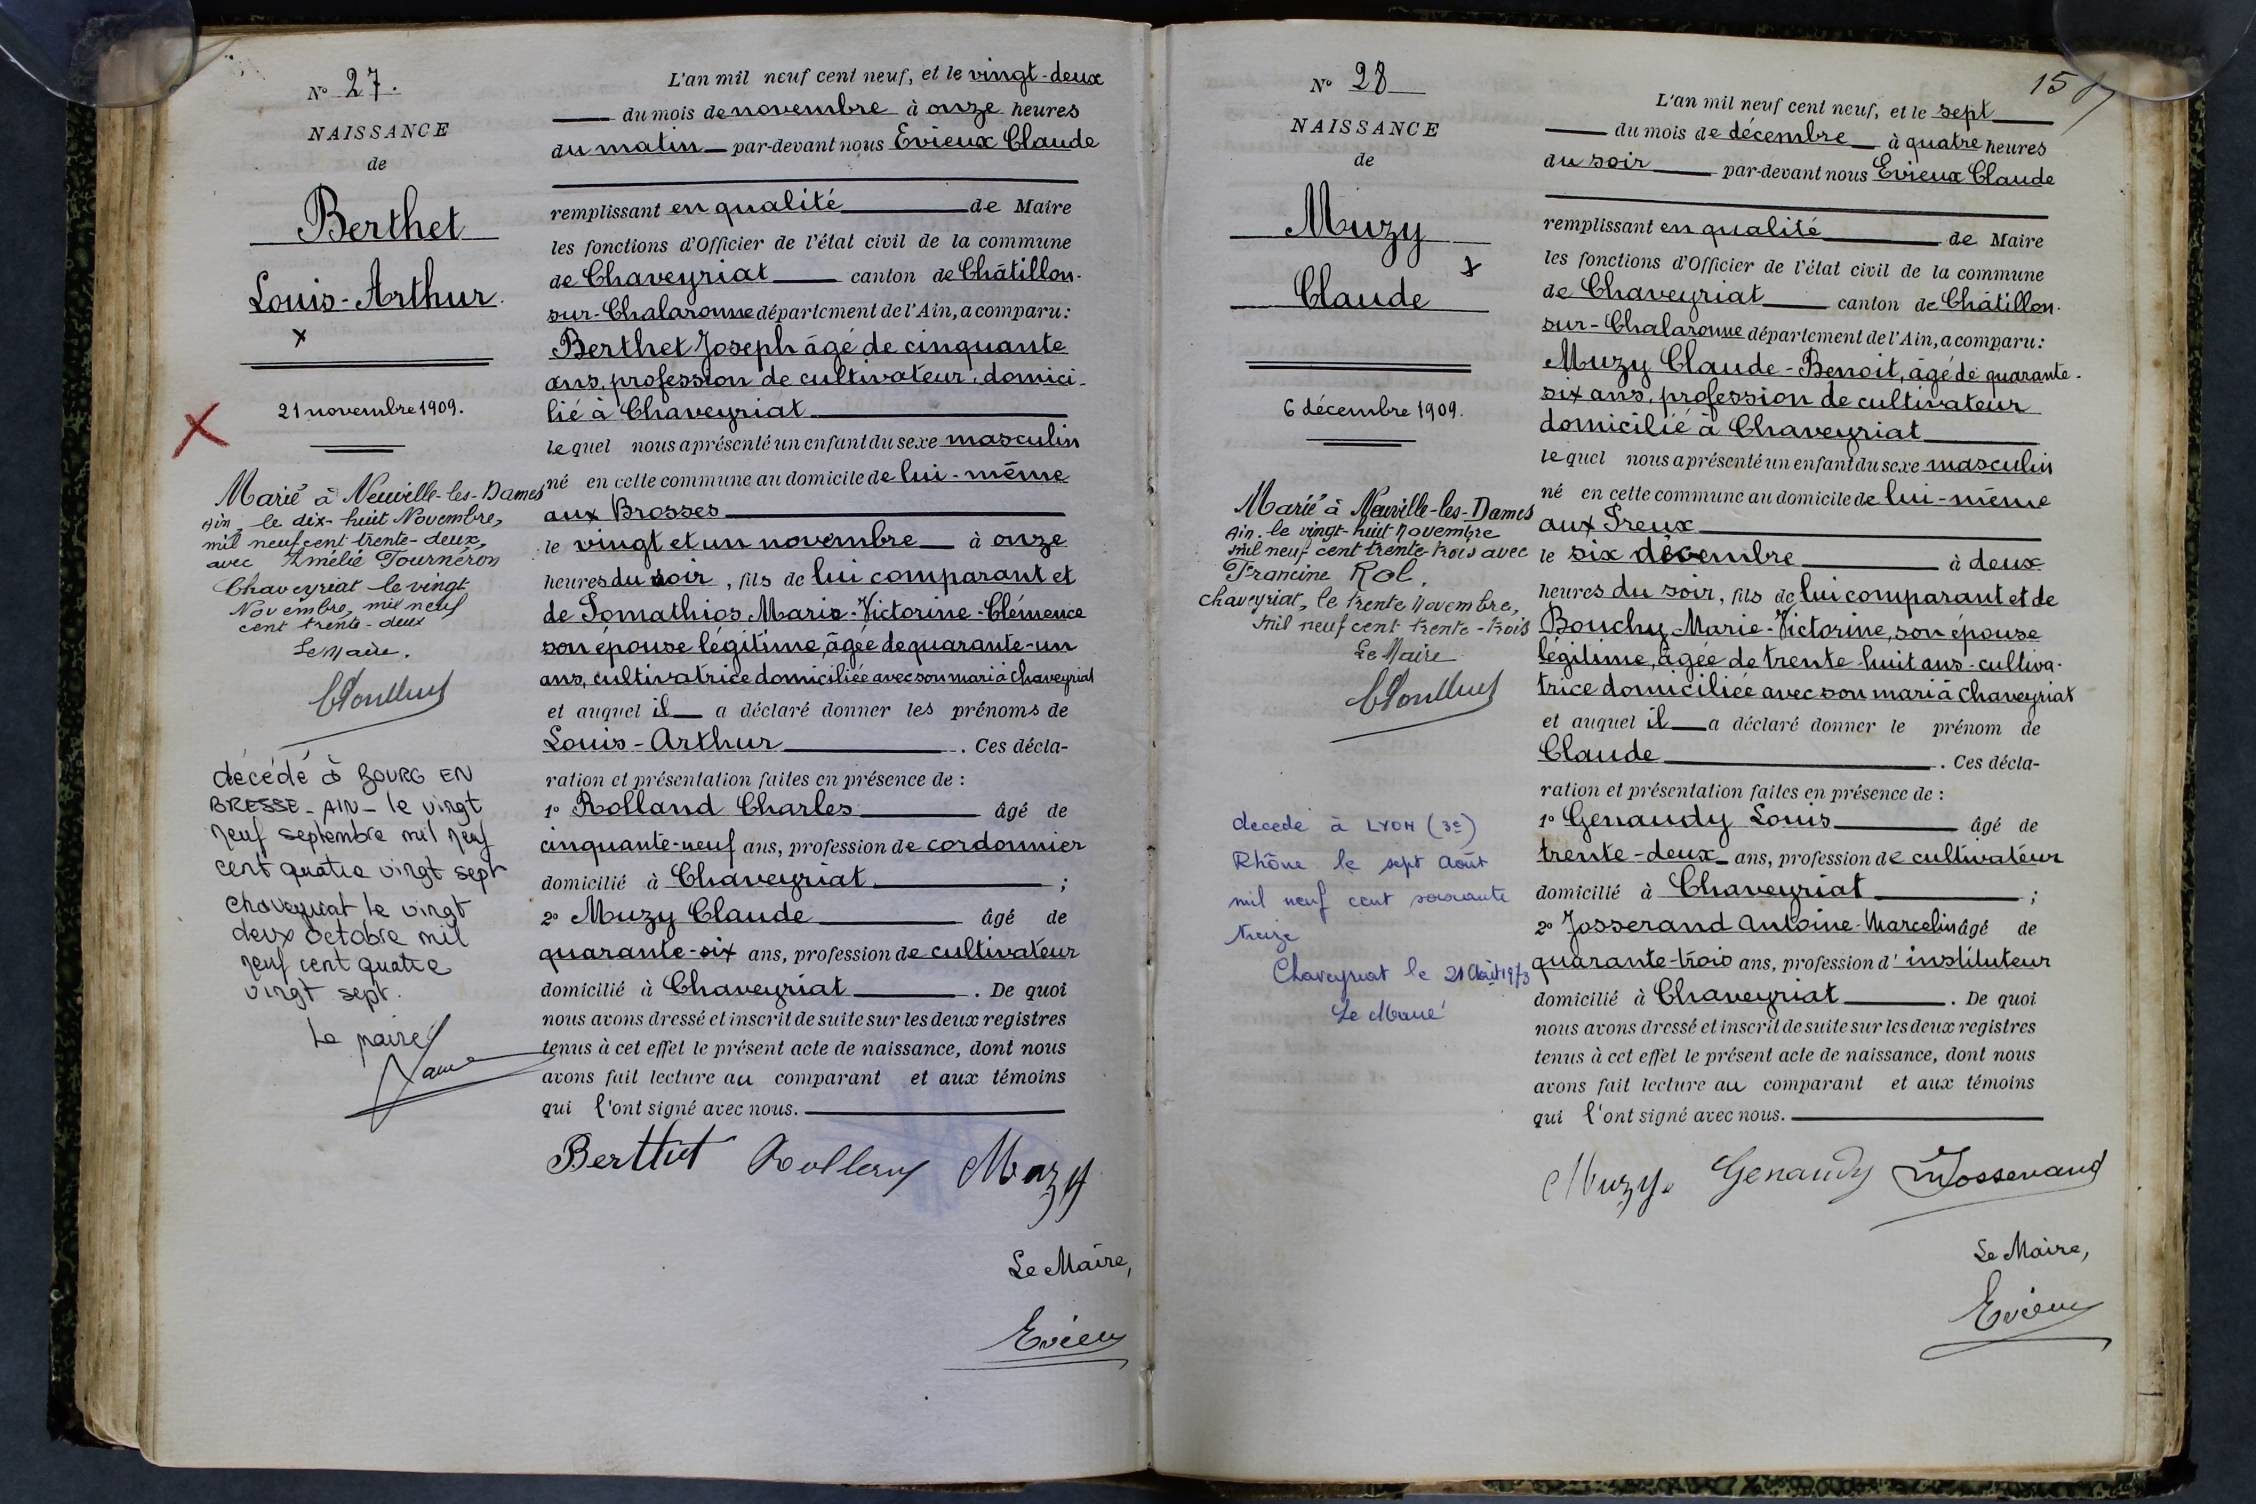 N° 27.
NAISSANCE
de
Berthet
Louis-Arthur.
x
21 novembre 1909.
X
Marié à Neuville-les-Dames
Ain, le dix-huit Novembre,
mil neuf cent trente-deux,
avec Amélie Tournéron
Chaveyriat le vingt
Novembre, mil neuf
cent trente-deux
Le Maire.
décédé à BOURG EN
BRESSE - AIN - le vingt
neuf septembre mil neuf
cent quatre vingt sept
Chaveyriat le vingt
deux octobre mil
neuf cent quatre
vingt sept.
Le Maire
L'an mil neuf cent neuf, et le vingt-deux
du mois de novembre à onze heures
du matin par-devant nous Evieux Claude
remplissant en qualité de Maire
les fonctions d'Officier de l'état civil de la commune
de Chaveyriat canton de Châtillon-
sur-Chalaronne département de l'Ain, a comparu:
Berthet Joseph âgé de cinquante
ans, profession de cultivateur, domici-
lié à Chaveyriat
lequel nous a présenté un enfant du sexe masculin
né en cette commune au domicile de lui-même
aux Brosses
le vingt et un novembre à onze
heures du soir, fils de lui comparant et
de Pomathios Marie-Victorine-Clémence
son épouse légitime, âgée de quarante-un
ans, cultivatrice domiciliée avec son mari à Chaveyriat
et auquel il a déclaré donner les prénoms de
Louis-Arthur. Ces décla-
ration et présentation faites en présence de:
1° Rolland Charles âgé de
cinquante-neuf ans, profession de cordonnier
domicilié à Chaveyriat;
2° Muzy Claude âgé de
quarante-six ans, profession de cultivateur
domicilié à Chaveyriat. De quoi
nous avons dressé et inscrit de suite sur les deux registres
tenus à cet effet le présent acte de naissance, dont nous
avons fait lecture au comparant et aux témoins
qui l'ont signé avec nous.
Berthet Rolland Muzy
Le Maire,
Evieux
N° 28
NAISSANCE
de
Muzy
x
Claude
6 décembre 1909.
Marié à Neuville-les-Dames
Ain. le vingt-huit Novembre
mil neuf cent trente-trois avec
Francine Rol.
Chaveyriat, le trente Novembre,
mil neuf cent trente-trois
Le Maire
decede à LYON (3e)
Rhône le sept Août
mil neuf cent soixante
treize
Chaveyriat le 21 Août 1973
Le Maire
15
L'an mil neuf cent neuf, et le sept
du mois de décembre à quatre heures
du soir par-devant nous Evieux Claude
remplissant en qualité de Maire
les fonctions d'Officier de l'état civil de la commune
de Chaveyriat canton de Châtillon-
sur-Chalaronne département de l'Ain, a comparu:
Muzy Claude-Benoit, âgé de quarante-
six ans, profession de cultivateur
domicilié à Chaveyriat
lequel nous a présenté un enfant du sexe masculin
né en cette commune au domicile de lui-même
aux Preux
le six décembre à deux
heures du soir, fils de lui comparant et de
Bouchy Marie-Victorine, son épouse
légitime, âgée de trente-huit ans-cultiva-
trice domiciliée avec son mari à Chaveyriat
et auquel il a déclaré donner le prénom de
Claude. Ces décla-
ration et présentation faites en présence de:
1° Genaudy Louis âgé de
trente-deux ans, profession de cultivateur
domicilié à Chaveyriat;
2° Josserand Antoine-Marcelin âgé de
quarante-trois ans, profession d'instituteur
domicilié à Chaveyriat. De quoi
nous avons dressé et inscrit de suite sur les deux registres
tenus à cet effet le présent acte de naissance, dont nous
avons fait lecture au comparant et aux témoins
qui l'ont signé avec nous.
Muzy. Genaudy Josserand
Le Maire,
Evieux